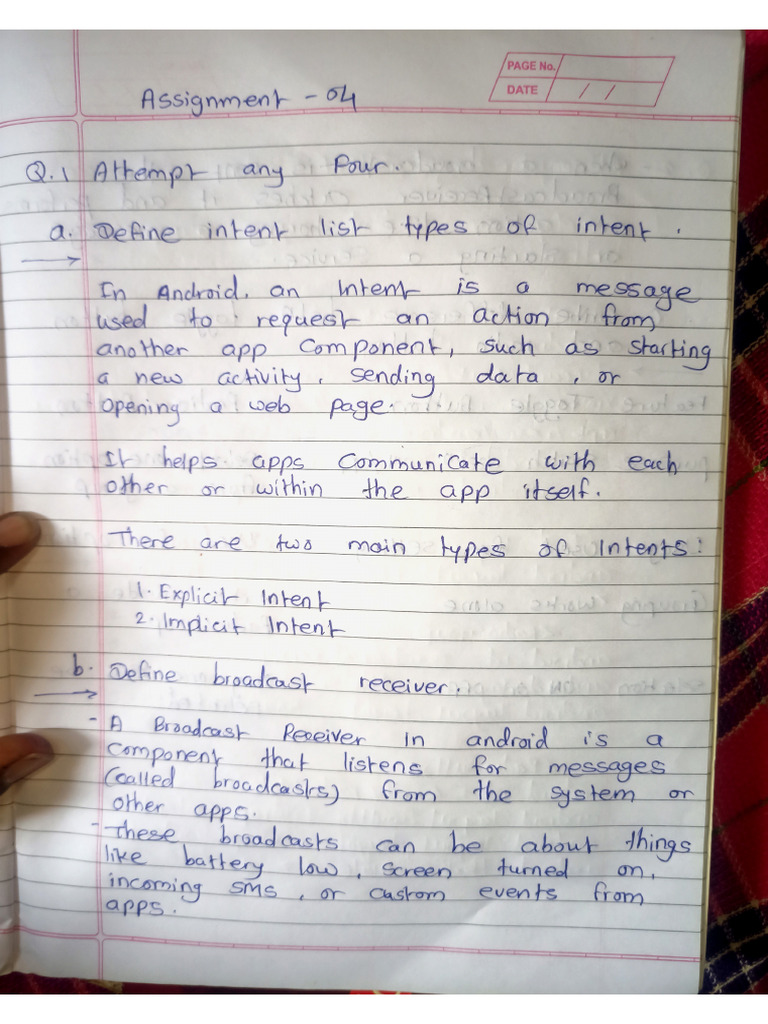 PAGE No.
DATE / /
Assignment - 04
Q.1 Attempt any Four.
a. Define intent list types of intent.
In Android, an Intent is a message
used to request an action from
another app component, such as starting
a new activity, sending data, or
opening a web page.
It helps apps communicate with each
other or within the app itself.
There are two main types of Intents:
1. Explicit Intent
2. Implicit Intent
b. Define broadcast receiver.
- A Broadcast Receiver in android is a
component that listens for messages
(called broadcasts) from the system or
other apps.
- These broadcasts can be about things
like battery low, screen turned on,
incoming SMS, or custom events from
apps.